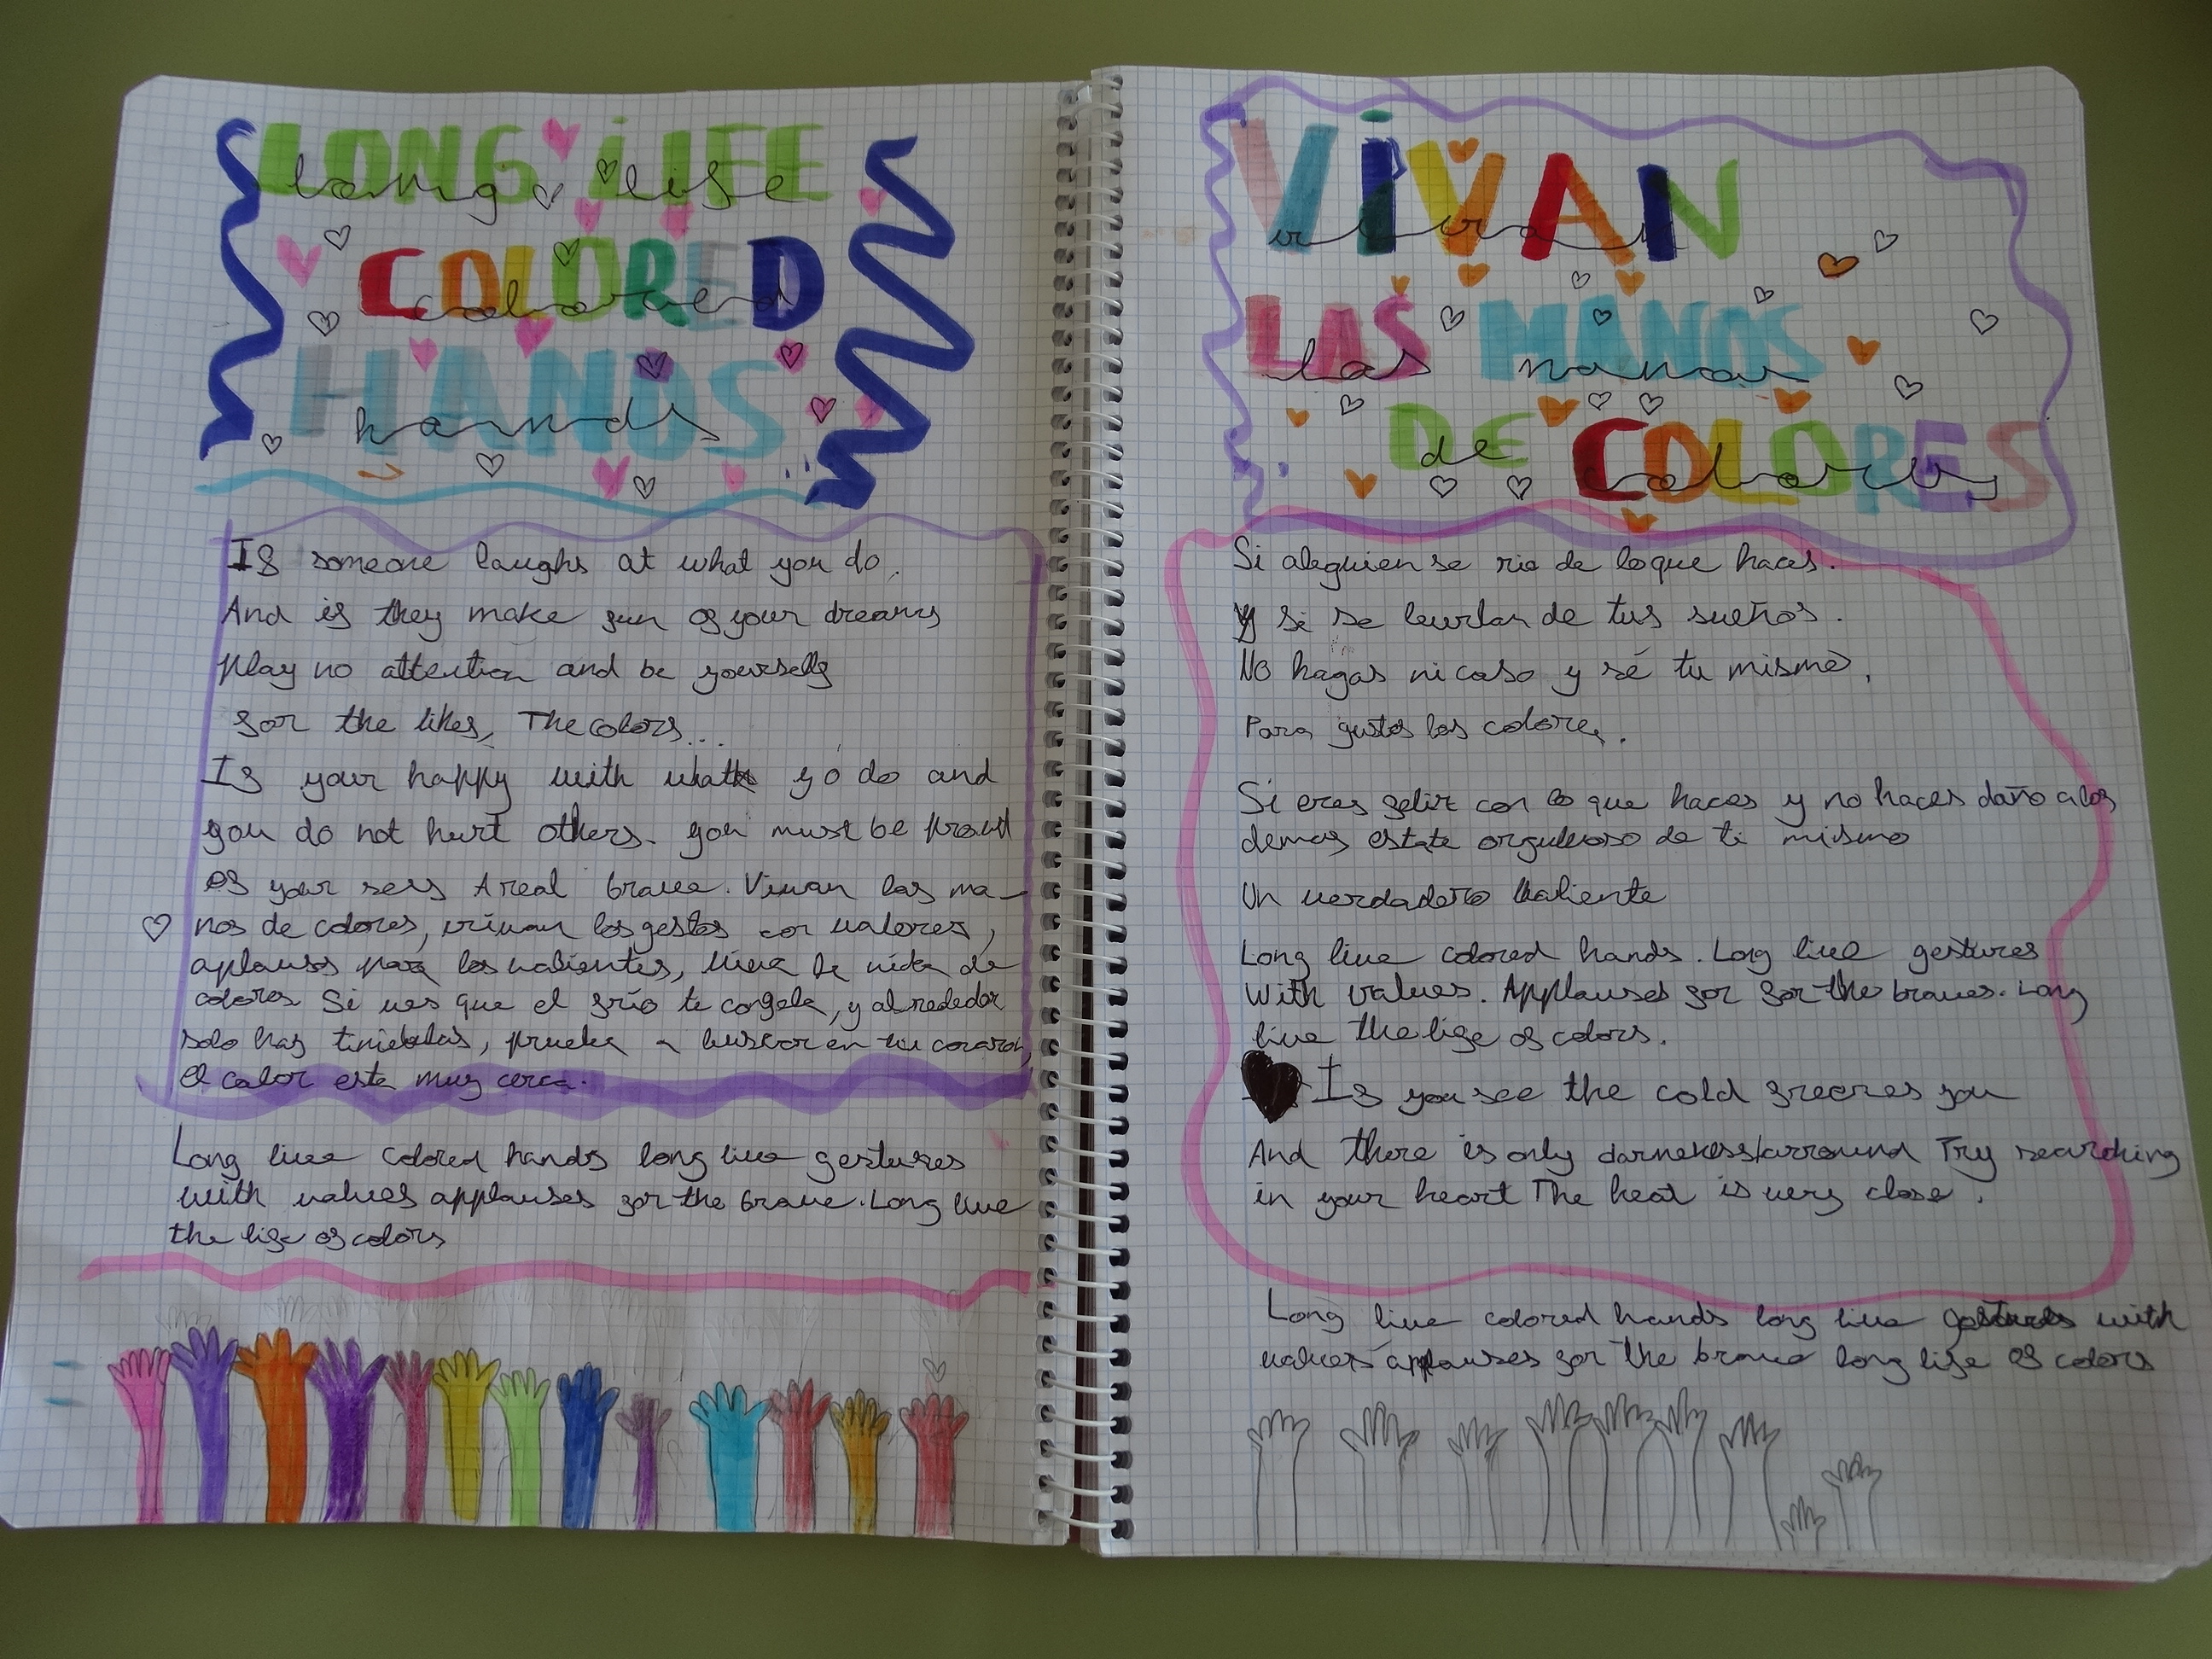 LONG LIFE
long life
COLORED
colored
HANDS
hands
If someone laughs at what you do.
And if they make fun of your dreams
Play no attention and be yourself
for the likes, The colors...
If your happy with what yo do and
you do not hurt others. you must be proud
of your A real brave. Vivan las ma-
nos de colores, vivan los gestos con valores,
aplausos para los valientes, viva la vida de
colores Si ves que el frío te congela, y alrededor
solo hay tinieblas, prueba a buscar en tu corazon,
el calor esta muy cerca.
Long live colored hands long live gestures
with values applauses for the brave. Long live
the life of colors
VIVAN
vivan
LAS MANOS
las manos
DE COLORES
de colores
Si aleguien se rie de lo que haces.
y si se burlan de tus sueños.
No hagas ni caso y sé tu mismo,
Para gustos los colores.
Si eres feliz con lo que haces y no haces daño a los
demas estate orgulloso de ti mismo
Un verdadero valiente
Long live colored hands. Long live gestures
With values. Applauses for for the braves. Long
live the life of colors.
If you see the cold freezes you
And there is only arround Try searching
in your heart The heat is very close.
Long live colored hands long live gestures with
values applauses for the brave long life of colors